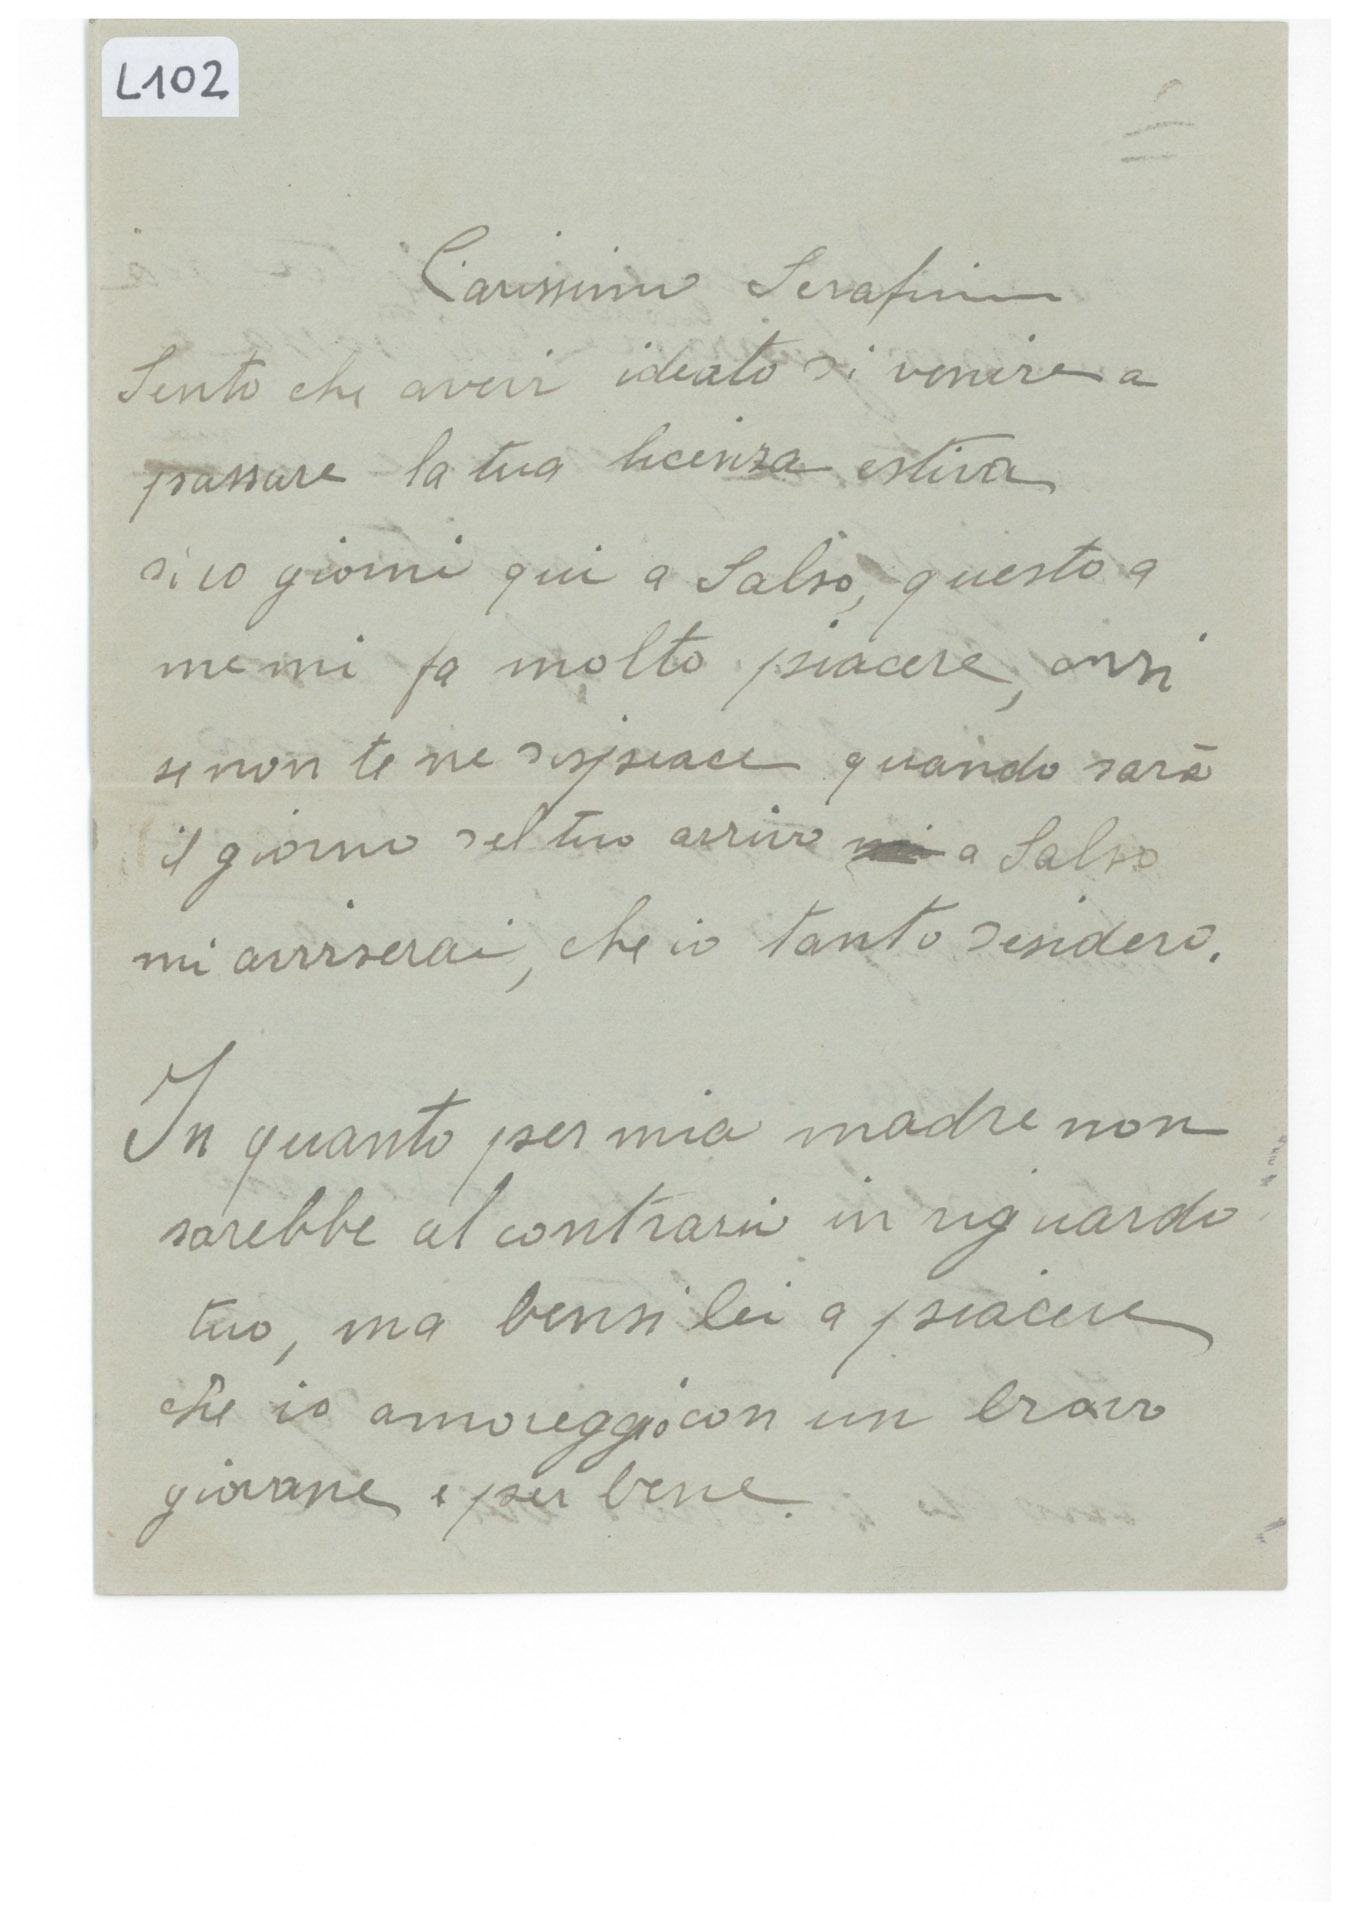 L102
Carissimo Serafino
Sento che averi ideato di venire a
passare la tua licenza estiva
di 10 giorni qui a Salso, questo a
me mi fa molto piacere, anzi
se non te ne dispiace quando sarà
il giorno del tuo arrivo a Salso
mi avviserai, che io tanto desidero.
In quanto per mia madre non
sarebbe al contrario in riguardo
tuo, ma bensi lei a piacere
che io amoreggio con un bravo
giovane e per bene.